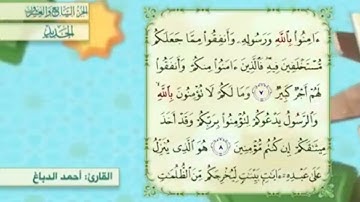 الجزء السابع والعشرون
الحديد
ءَامِنُوا۟ بِٱللَّهِ وَرَسُولِهِۦ وَأَنفِقُوا۟ مِمَّا جَعَلَكُم
مُّسْتَخْلَفِينَ فِيهِ ۖ فَٱلَّذِينَ ءَامَنُوا۟ مِنكُمْ وَأَنفَقُوا۟
لَهُمْ أَجْرٌ كَبِيرٌ ٧ وَمَا لَكُمْ لَا تُؤْمِنُونَ بِٱللَّهِ ۙ
وَٱلرَّسُولُ يَدْعُوكُمْ لِتُؤْمِنُوا۟ بِرَبِّكُمْ وَقَدْ أَخَذَ
مِيثَٰقَكُمْ إِن كُنتُم مُّؤْمِنِينَ ٨ هُوَ ٱلَّذِى يُنَزِّلُ
عَلَىٰ عَبْدِهِۦٓ ءَايَٰتٍۭ بَيِّنَٰتٍ لِّيُخْرِجَكُم مِّنَ ٱلظُّلُمَٰتِ
القارئ: أحمد الدباغ